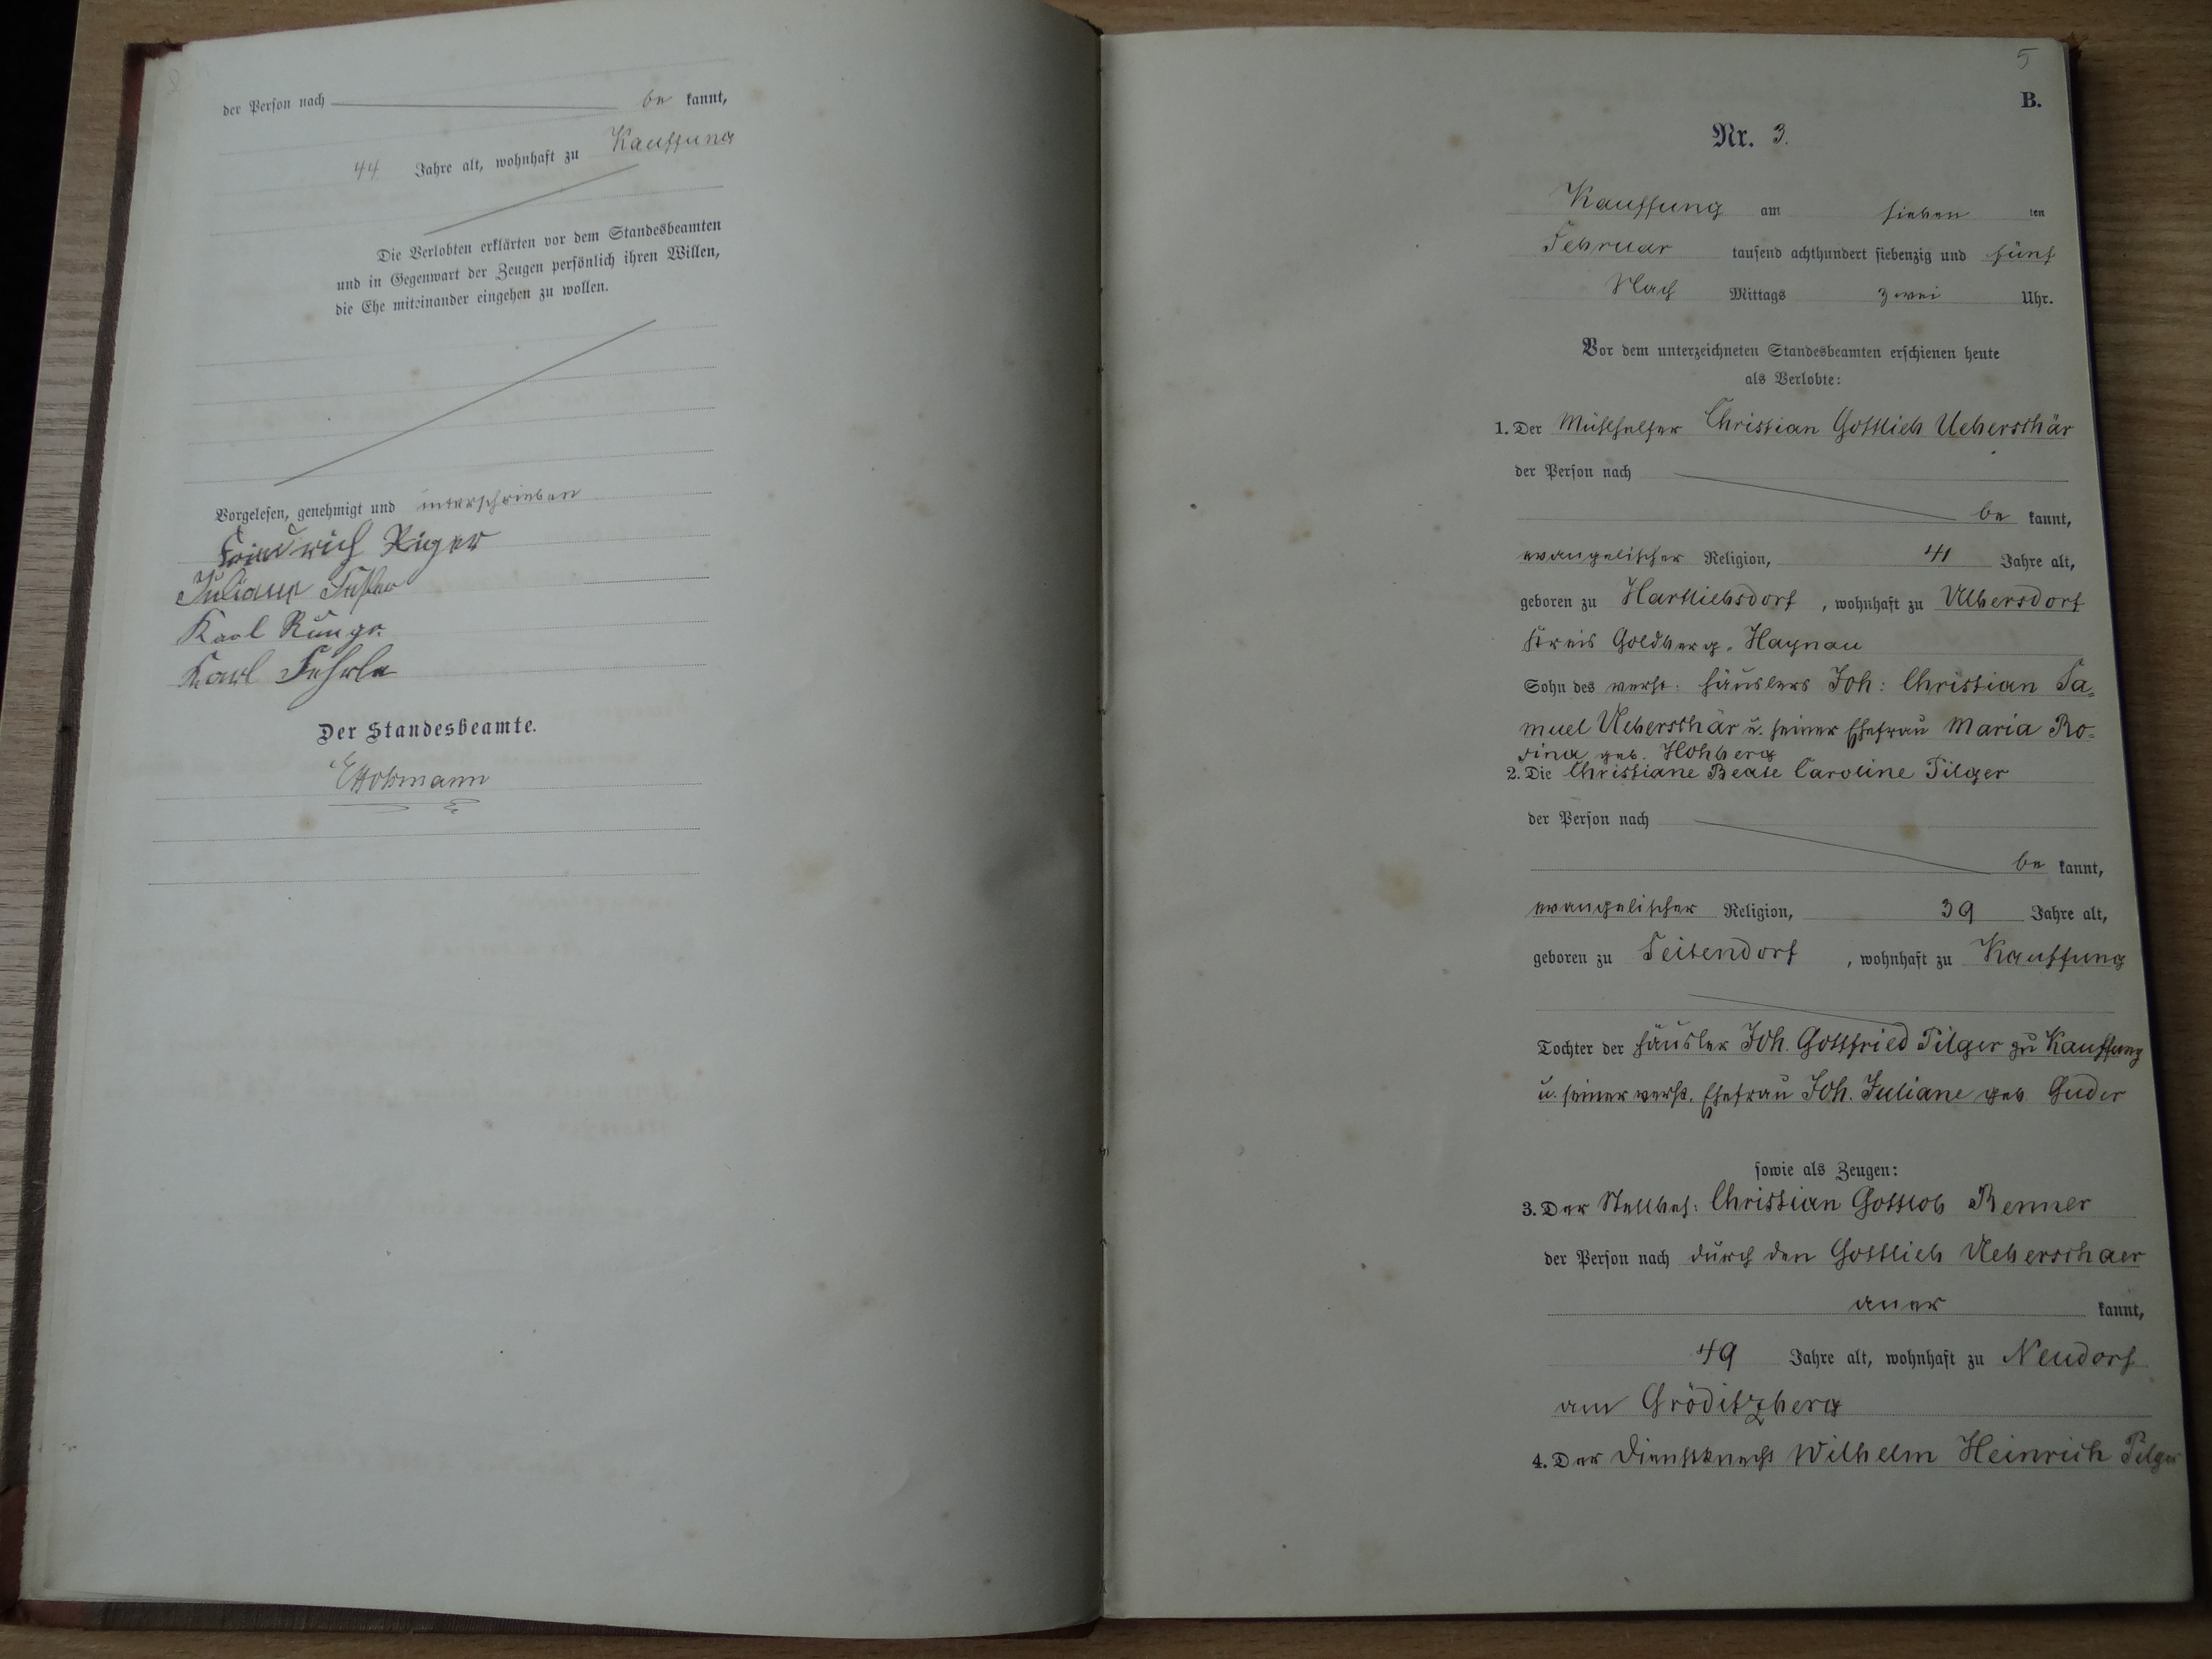 der Person nach be kannt,
44 Jahre alt, wohnhaft zu Kauffung
Die Verlobten erklärten vor dem Standesbeamten
und in Gegenwart der Zeugen persönlich ihren Willen,
die Ehe miteinander eingehen zu wollen.
Vorgelesen, genehmigt und unterschrieben
Friedrich
Juliane
Karl Runge
Karl Fehrle
Der Standesbeamte.
5
B.
Nr. 3.
Kauffung am sieben ten
Februar tausend achthundert siebenzig und fünf
Nach Mittags zwei Uhr.
Vor dem unterzeichneten Standesbeamten erschienen heute
als Verlobte:
1. Der Mühlhelfer Christian Gottlieb Ueberschär
der Person nach
be kannt,
evangelischer Religion, 41 Jahre alt,
geboren zu Hartliebsdorf, wohnhaft zu Ulbersdorf
Kreis Goldberg-Haynau
Sohn des verst: Häuslers Joh: Christian Sa=
muel Ueberschär u. seiner Ehefrau Maria Ro=
sina geb. Hohberg
2. Die Christiane Beate Caroline Pilger
der Person nach
be kannt,
evangelischer Religion, 39 Jahre alt,
geboren zu Seitendorf, wohnhaft zu Kauffung
Tochter der Häusler Joh. Gottfried Pilger zu Kauffung
u. seiner verst. Ehefrau Joh. Juliane geb. Guder
sowie als Zeugen:
3. Der Stellbes: Christian Gottlob Renner
der Person nach durch den Gottlieb Ueberschaer
aner kannt,
49 Jahre alt, wohnhaft zu Neudorf
am Gröditzberg
4. Der Dienstknecht Wilhelm Heinrich Pilger